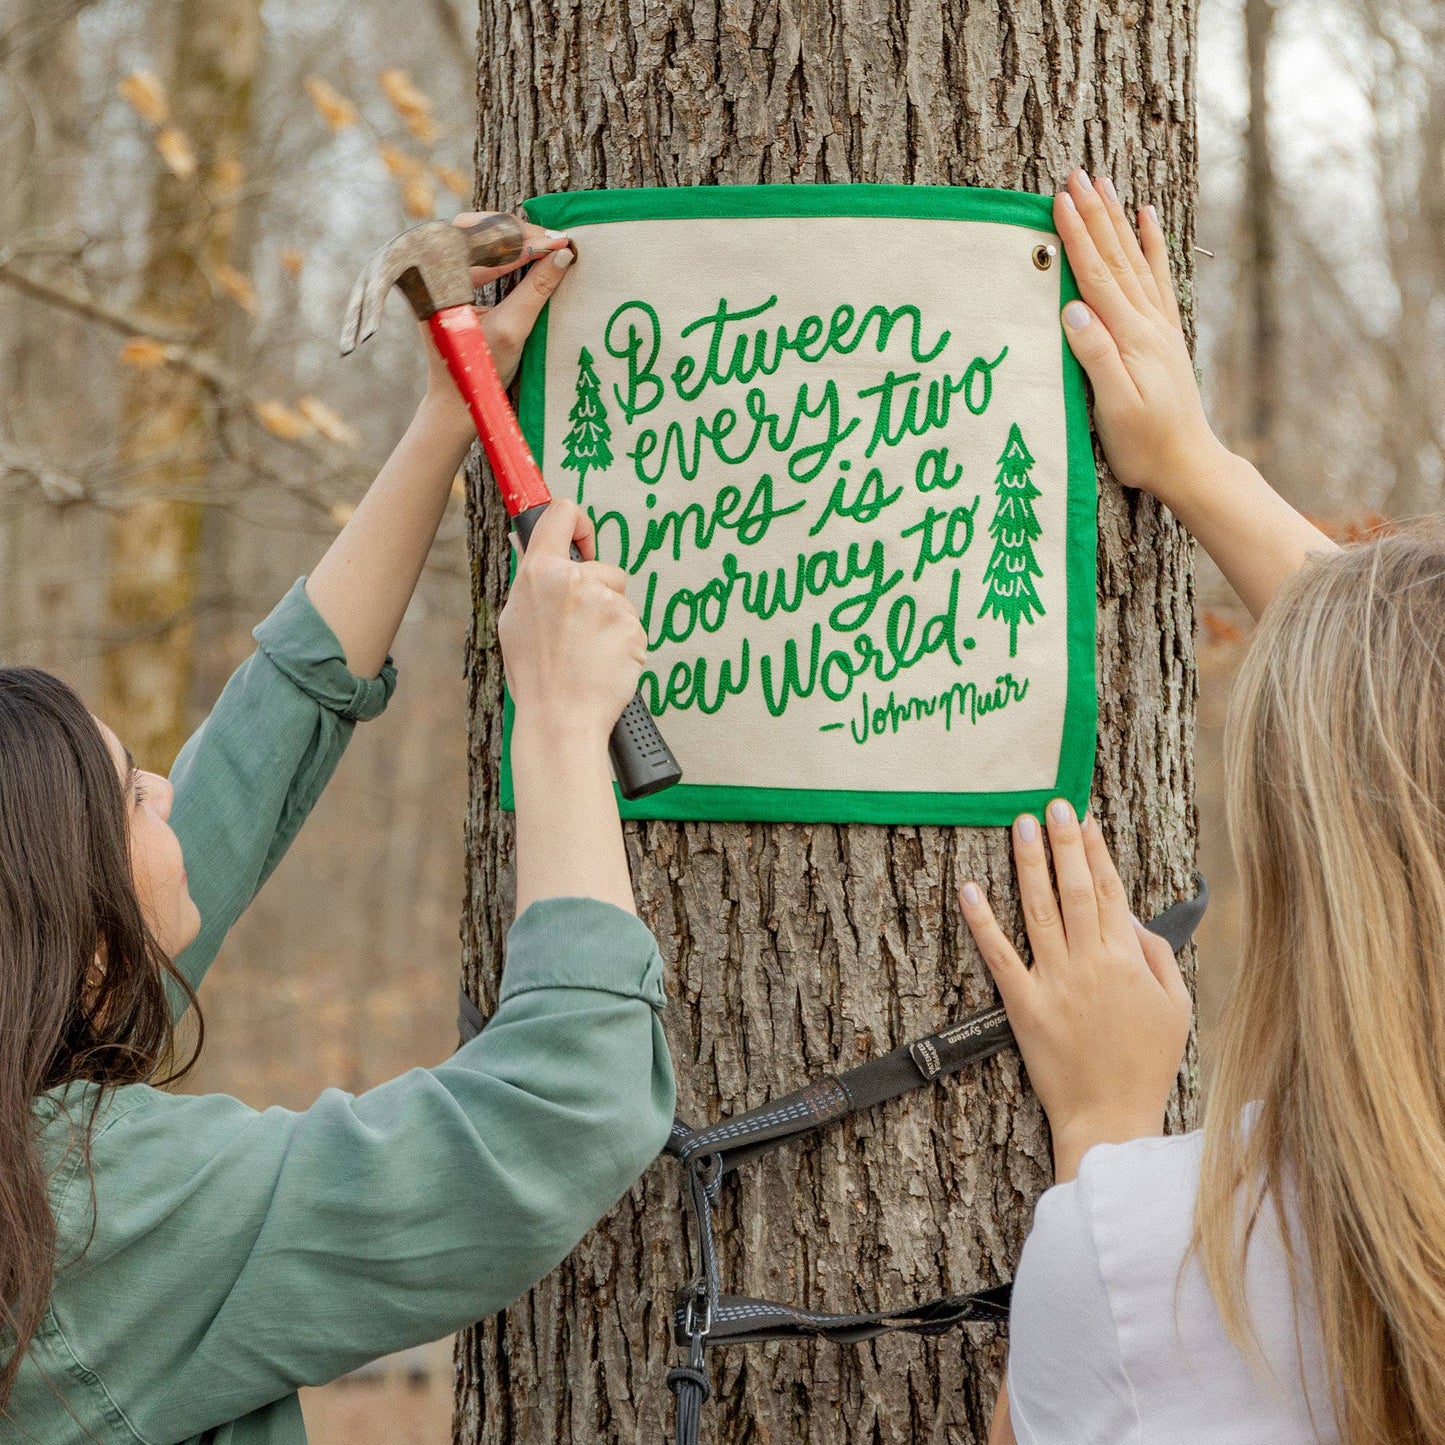 Between
every two
pines is a
doorway to
new World.
-John Muir
nsion System